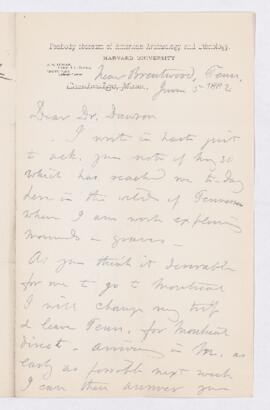 Peabody Museum of American Archæology and Ethnology,
HARVARD UNIVERSITY
Cambridge, Mass.
Near Brentwood, Tenn.
June 5 1882
Dear Dr. Dawson
I write in haste just
to ack. your note of May 30
which has reached me to-day
here in the wilds of Tennessee
where I am work exploring
mounds & graves –
As you think it desirable
for me to go to Montreal
I will change my trip
& leave Tenn. for Montreal
direct – arriving in M. as
early as possible next week
I can then answer your